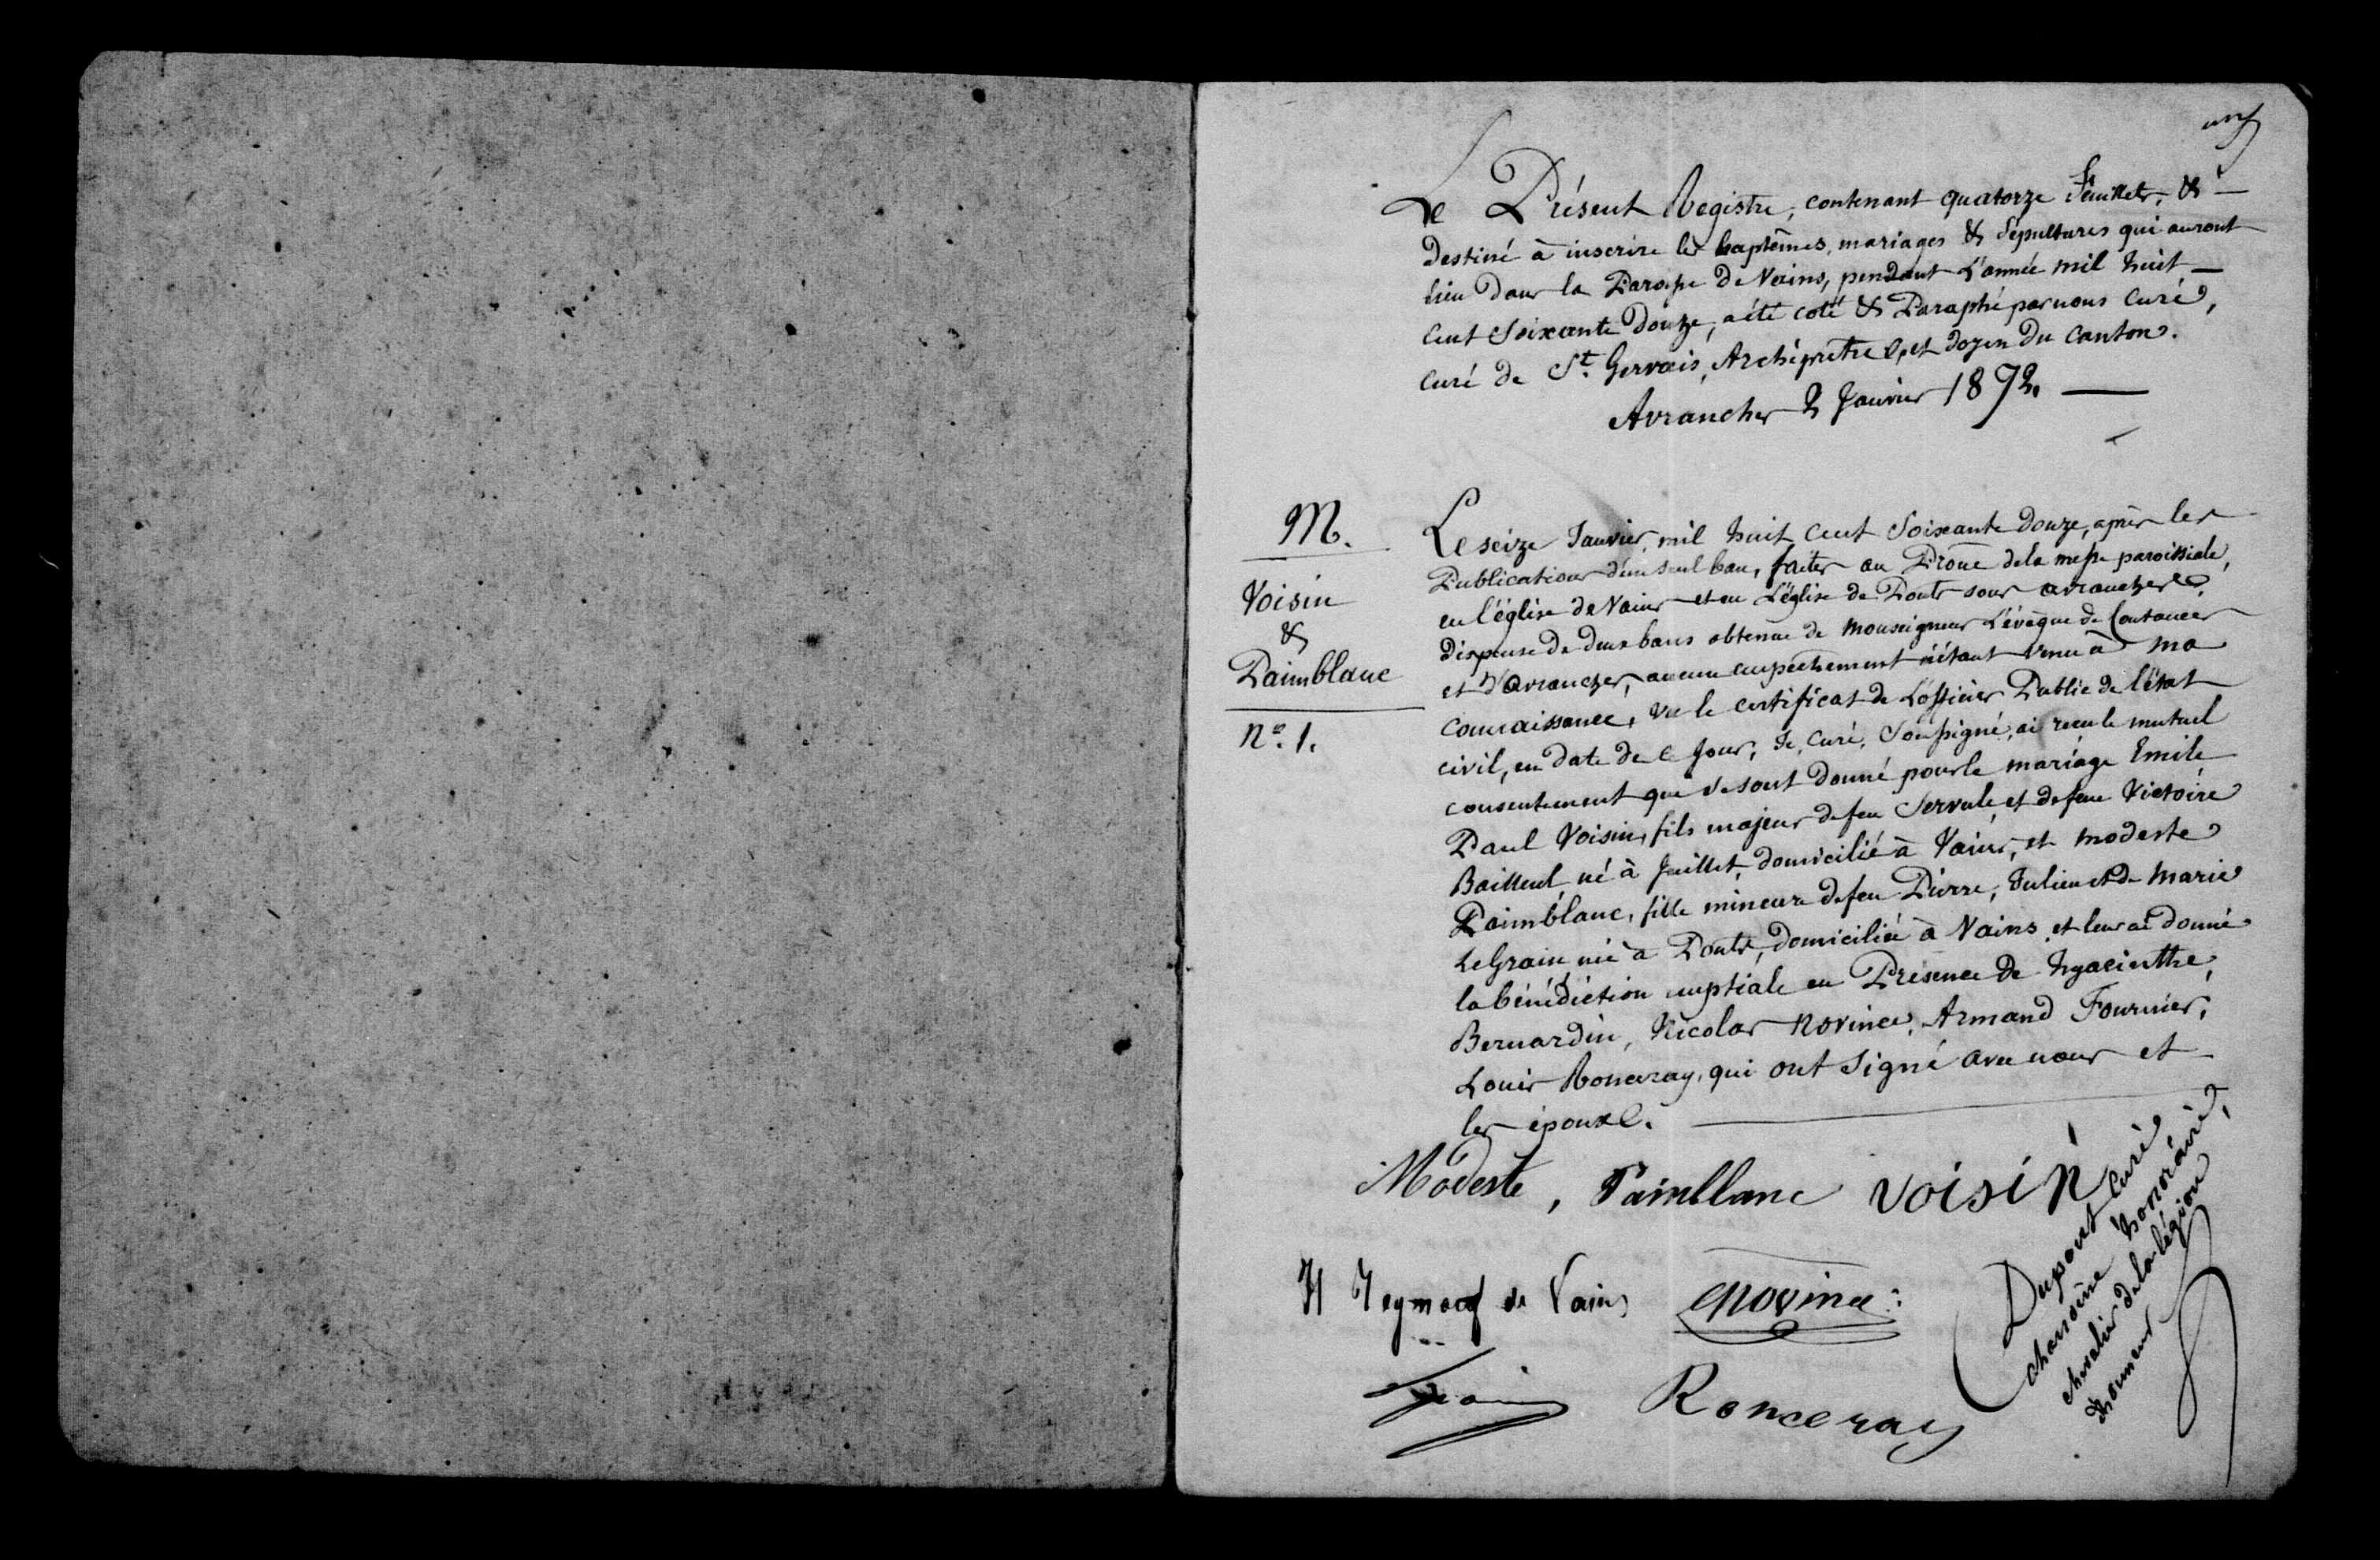 un
Le Présent Registre, contenant quatorze feuillets, &
destiné à inscrire les baptêmes, mariages & Sépultures qui auront
lieu dans la Paroisse de Vains, pendant L'année mil huit
cent Soixante Douze, a été coté & Paraphé par nous Curé,
curé de St. Gervais, Archiprêtre, et doyen du canton.
Avranches 2 Janvier 1872.
M.
Voisin
&
Paimblanc
No. 1.
Le seize Janvier, mil huit cent Soixante douze, après les
Publications d'un seul ban, faites au Prône de la messe paroissiale,
en l'église de Vains et en L'église de Ponts sous avranches
dispense de deux bans obtenue de Monseigneur L'évêque de Coutances
et d'Avranches, aucun empêchement n'étant venu à ma
connaissance, vu le certificat de L'officier Public de l'état
civil, en date de ce Jour, Je, curé, Soussigné, ai reçu le mutuel
consentement que se sont donné pour le mariage Emile
Paul Voisin, fils majeur de feu Servule, et de feue Victoire
Bailleul, né à Juillet, domicilié à Vains, et modeste
Paimblanc, fille mineure de feu Pierre, Julien et de Marie
LeGrain née à Ponts, domiciliée à Vains, et leur ai donné
la bénédiction nuptiale en Présence de hyacinthe,
Bernardin, Nicolas Novince, Armand Fournier,
Louis Ronceray, qui ont signé avec nous et
les époux.
Modeste, Paimblanc voisin
H de Vains Novince
Ronceray
Dupont curé
chanoine honoraire,
chevalier de la légion
d'honneur